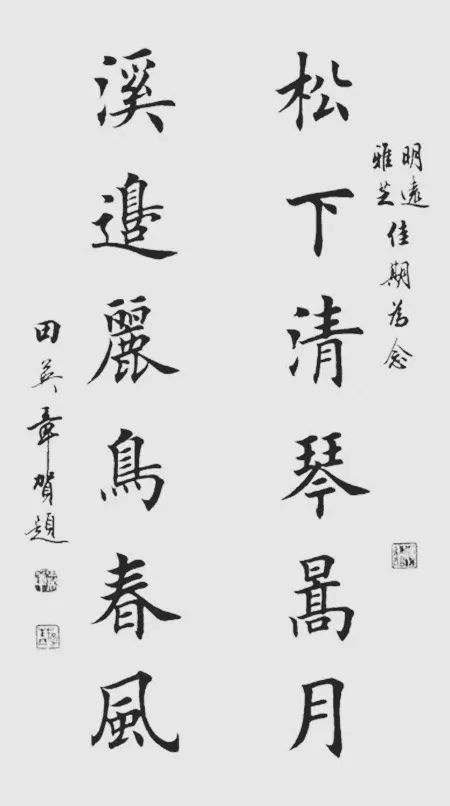 明遠
雅芝
佳期為念
松下清琴暠月
溪邊麗鳥春風
田英章賀題